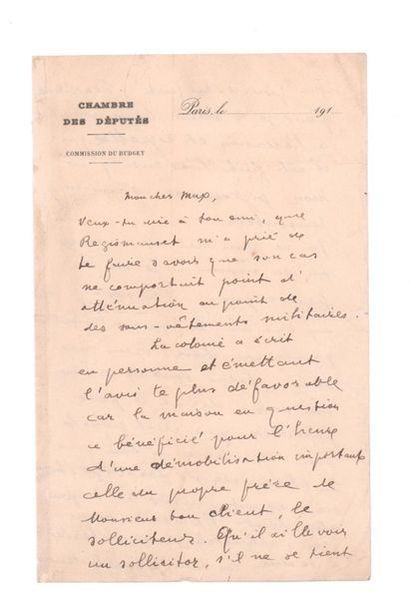 CHAMBRE
DES DÉPUTÉS
COMMISSION DU BUDGET
Paris, le 191
Mon cher Max,
Veux-tu dire à ton ami, que
Régismanset m'a prié de
te faire savoir que son cas
ne comportait point d'
atténuation au point de
des sous-vêtements militaires.
La colonie a écrit
en personne et émettant
l'avis le plus défavorable
car la maison en question
a bénéficié pour l'heure
d'une démobilisation importante
celle du propre frère de
Monsieur ton client, le
solliciteur. Qu'il aille voir
un sollicitor, s'il ne se tient